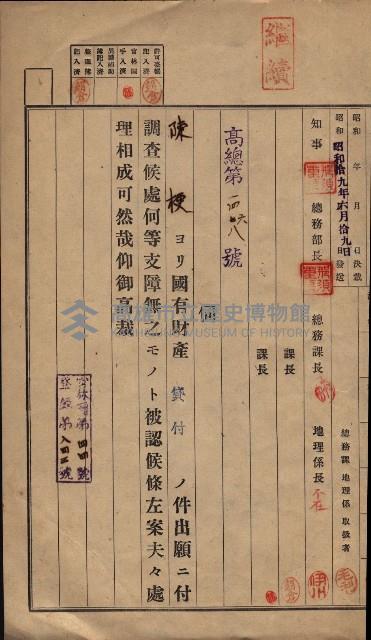 繼續
許可臺帳記入濟
記入濟
昭和 年 月 日 決裁
昭和 年 月 日 發送
昭和拾九年六月拾九日
知事 總務部長 總務課長 地理係長 不在
總務課 地理係 取扱者
課長
課長
高總第一四六八號
伺
陳梗 ヨリ國有財產 貸付 ノ件出願ニ付
調查候處何等支障無之モノト被認候條左案夫々處
理相成可然哉仰御高裁
高雄市立歷史博物館
KAOHSIUNG MUSEUM OF HISTORY